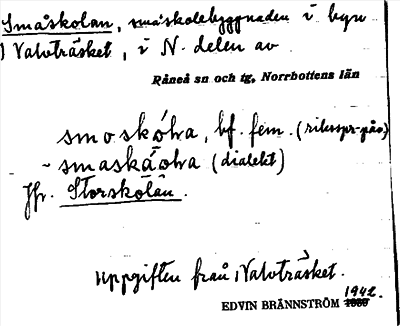 Småskolan, småskolebyggnaden i byn
Valvträsket, i N. delen av
Råneå sn och tg, Norrbottens län
smoskóɷa, bf. fem. (riksspr-påv)
~ smaskáoɷa (dialekt)
Jfr. Storskolan.
Uppgiften från Valvträsket.
1942.
EDVIN BRÄNNSTRÖM 1939